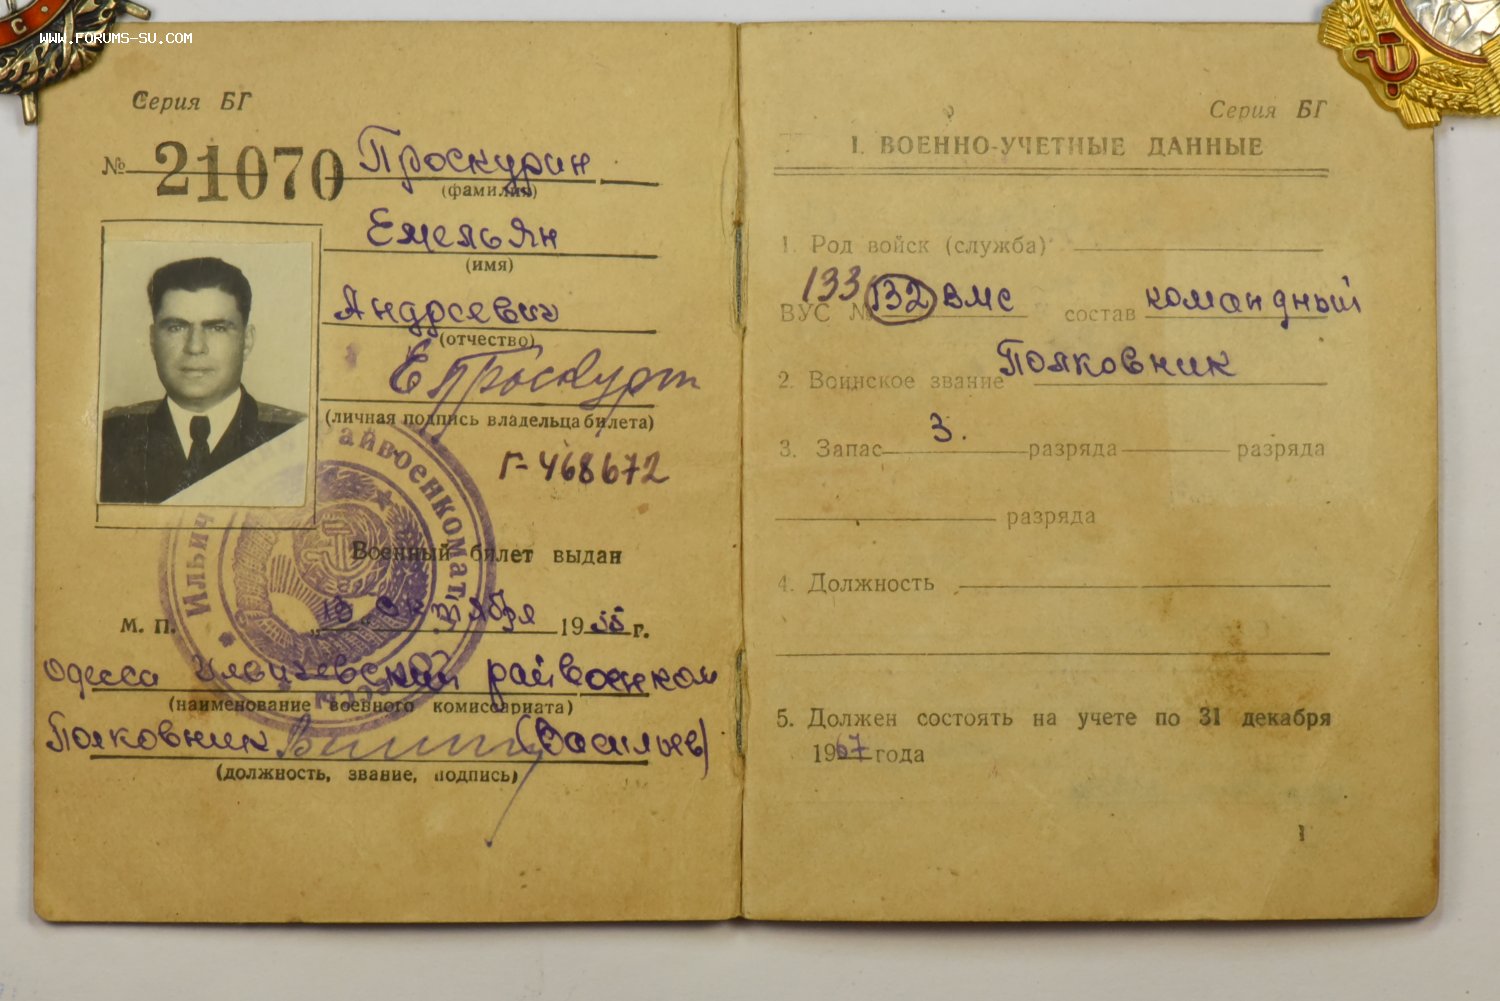 WWW.FORUMS-SU.COM
Серия БГ
№ 21070 Проскурин
(фамилия)
Емельян
(имя)
Андреевич
(отчество)
ЕПроскурин
(личная подпись владельца билета)
Г-468672
Военный билет выдан
М. П. „18" октября 1955 г.
Одесса Ильичевский райвоенком
(наименование военного комиссариата)
Полковник (Васильев)
(должность, звание, подпись)
Ильич райвоенкомат
Серия БГ
I. ВОЕННО-УЧЕТНЫЕ ДАННЫЕ
1. Род войск (служба)
133
ВУС № 132 ВМС состав командный
2. Воинское звание Полковник
3. Запас 3. разряда разряда
разряда
4. Должность
5. Должен состоять на учете по 31 декабря
1967 года
1